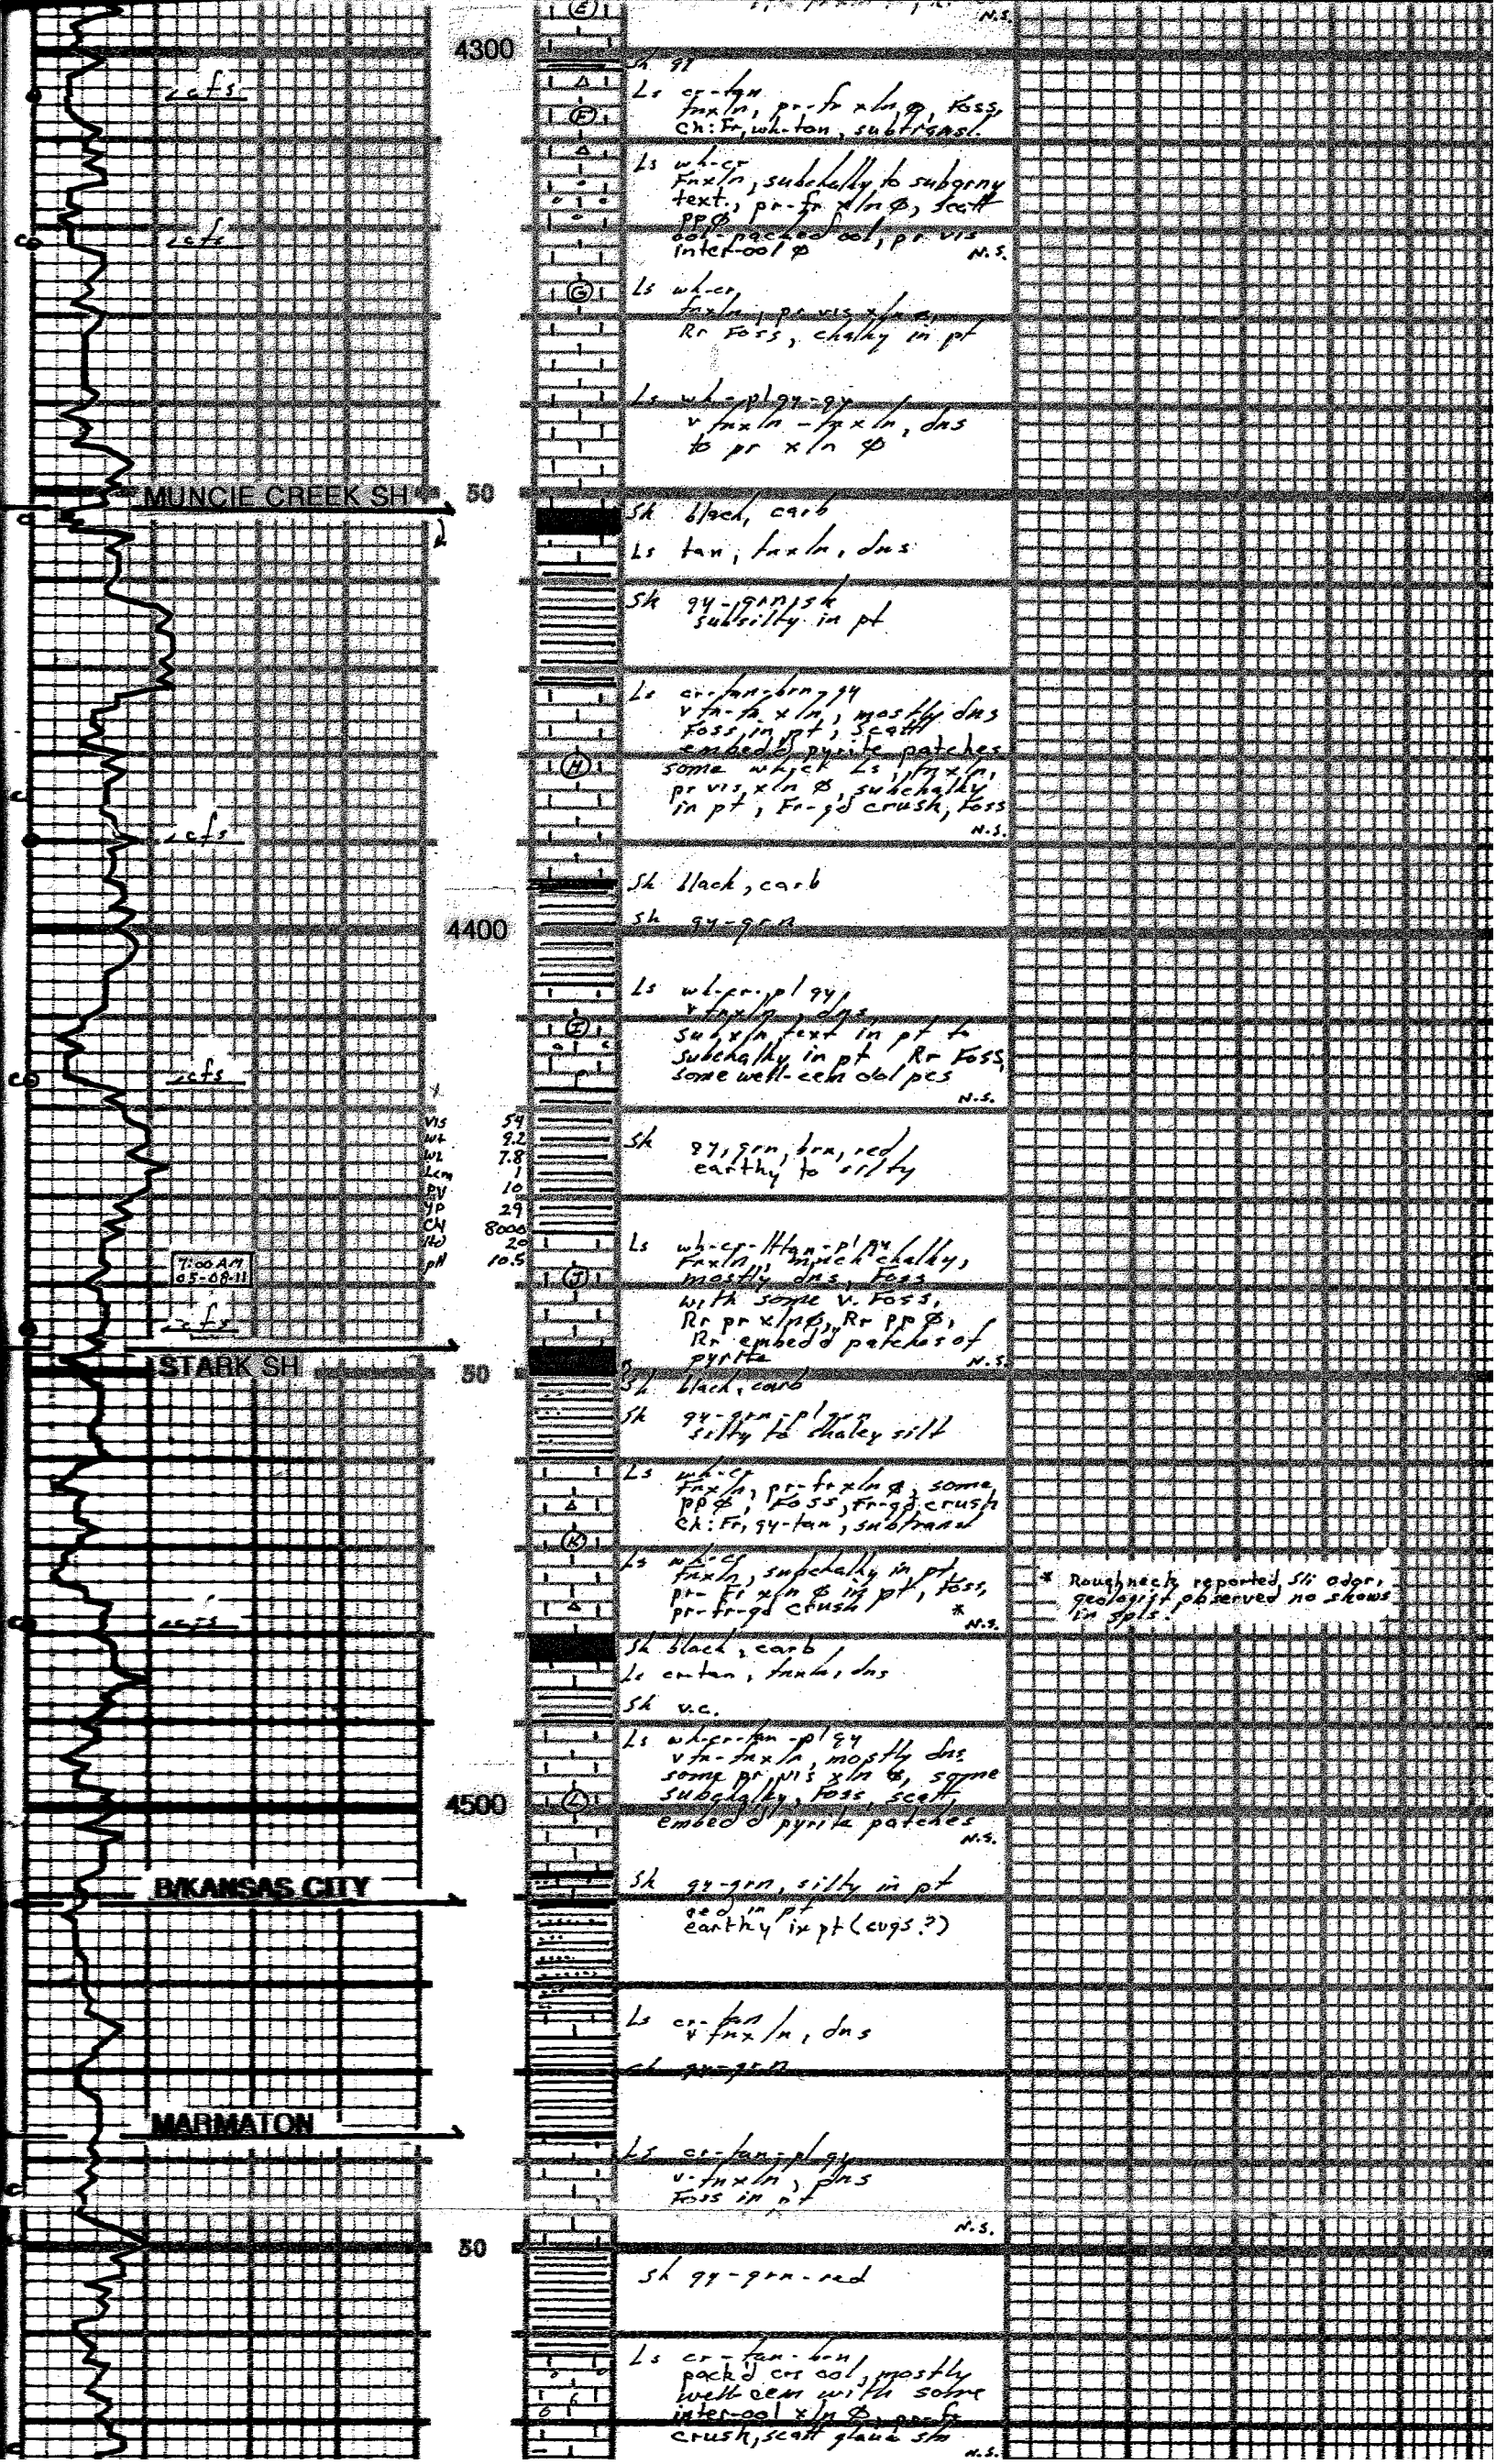 (E)
N.S.
4300
Sh gy
Ls cr-tan
fnxln, pr-fr xln ø, Foss,
Ch: Fr, wh-tan, subtransl.
(F)
cfs
Ls wh-cr
Fnxln, subchalky to subgrny
text., pr-fr xln ø, scatt
pp ø
ool-packed ool, pr vis
inter-ool ø N.S.
cfs
(G)
Ls wh-cr,
fnxln, pr vis xln ø,
Rr Foss, chalky in pt
Ls wh-pl gy-gy
v fnxln - fnxln, dns
to pr xln ø
MUNCIE CREEK SH
50
Sh black, carb
Ls tan, fnxln, dns
Sh gy-grn, sh
subsilty in pt
Ls cr-tan-brn-gy
v fn-fn xln, mostly dns
Foss in pt, scatt
embed'd pyrite patches
(H)
some wh-cr Ls, fnxln,
pr vis xln ø, subchalky
in pt, Fr-gd crush, Foss
N.S.
cfs
Sh black, carb
4400
Sh gy-grn
Ls wh-cr-pl gy,
v fnxln, dns,
(I)
subxln text in pt to
subchalky in pt Rr Foss,
some well-cem ool pcs
N.S.
cfs
vis 54
wt 9.2
WL 7.8
Lcm 1
PV 10
YP 29
Chl 8000
Hd 20
pH 10.5
Sh gy, grn, brn, red,
earthy to silty
7:00 AM
05-08-11
Ls wh-cr-lt tan-pl gy
Fnxln, much chalky,
mostly dns, Foss
(J)
with some v. Foss,
Rr pr xln ø, Rr pp ø,
Rr embed'd patches of
pyrite N.S.
cfs
STARK SH
50
Sh black, carb
Sh gy-grn-pl grn
silty to shaley silt
Ls wh-cr
fnxln, pr-fr xln ø, some
pp ø, Foss, Fr-gd crush
Ch: Fr, gy-tan, subtransl
(K)
Ls wh-cr
fnxln, subchalky in pt,
pr-Fr xln ø in pt, Foss,
pr-fr-gd crush *
N.S.
* Roughneck reported sli odor,
geologist observed no shows
in spls.
cfs
Sh black, carb
Ls cr-tan, fnxln, dns
Sh v.c.
Ls wh-cr-tan-pl gy
v fn-fnxln, mostly dns
some pr vis xln ø, some
subchalky, Foss, scatt
4500
(L)
embed'd pyrite patches
N.S.
B/KANSAS CITY
Sh gy-grn, silty in pt
red in pt
earthy in pt (cvgs?)
Ls cr-tan
v fnxln, dns
sh gy-grn
MARMATON
Ls cr-tan-pl gy
v-fnxln, dns
Foss in pt
N.S.
50
sh gy-grn-red
Ls cr-tan-brn,
pack'd crs ool, mostly
well-cem with some
inter-ool xln ø, pr-fr
crush, scatt glauc
N.S.